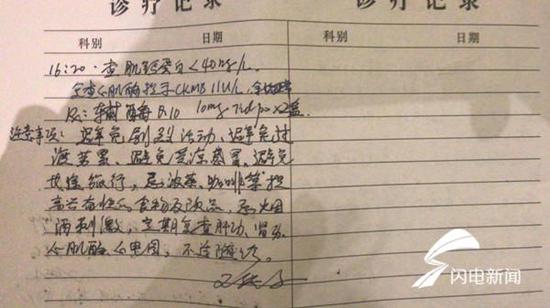 诊疗记录
诊疗记录
科别 日期
科别 日期
16:20. 查肌红蛋白<40ng/L.
查心肌酶 CKMB 11U/L,
Rx: 辅酶Q10 10mg tid po ×2盒
注意事项: 避免剧烈活动、避免过
海苔晕、避免受凉感冒、避免
长途旅行, 忌浓茶、咖啡等提
高兴奋性的食物及饮品, 忌烟
酒刺激, 定期复查肝功、肾功、
心肌酶、心电图, 不适随诊.
闪电新闻